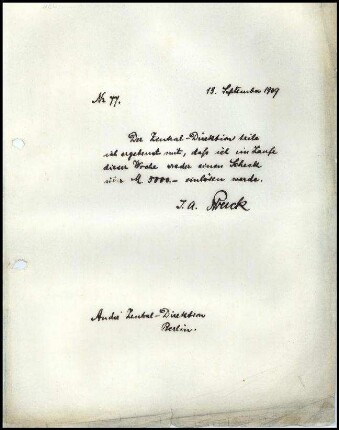 13. September 1909
No 77.
Der Zentral-Direktion teile
ich ergebenst mit, daß ich im Laufe
dieser Woche wieder einen Scheck
über M. 5000.- einlösen werde.
I. A.
An die Zentral-Direktion
Berlin.